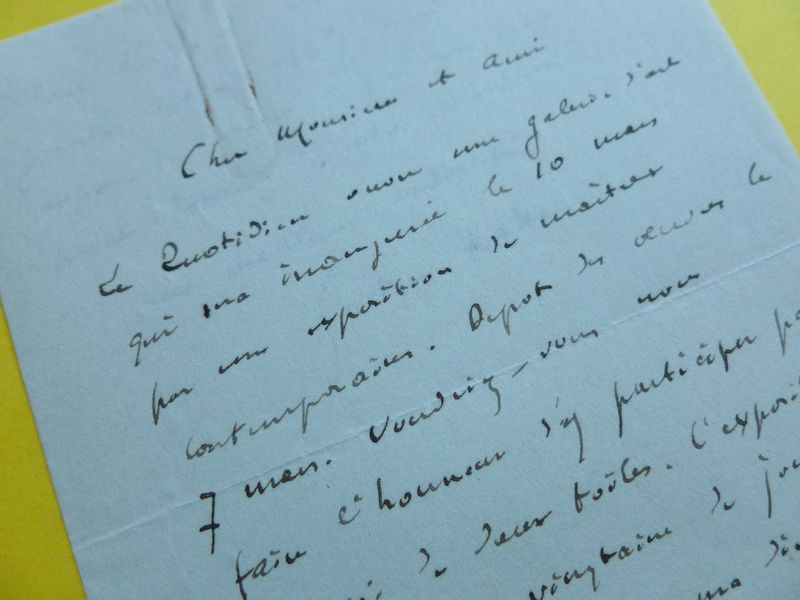 Cher Monsieur et ami
Le Quotidien ouvre une galerie d'art
qui sera inaugurée le 10 mars
par une exposition de maîtres
contemporains. Dépôt des oeuvres le
7 mars. Voudriez-vous nous
faire l'honneur d'y participer pa
de deux toiles. L'exposi
vingtaine de jou